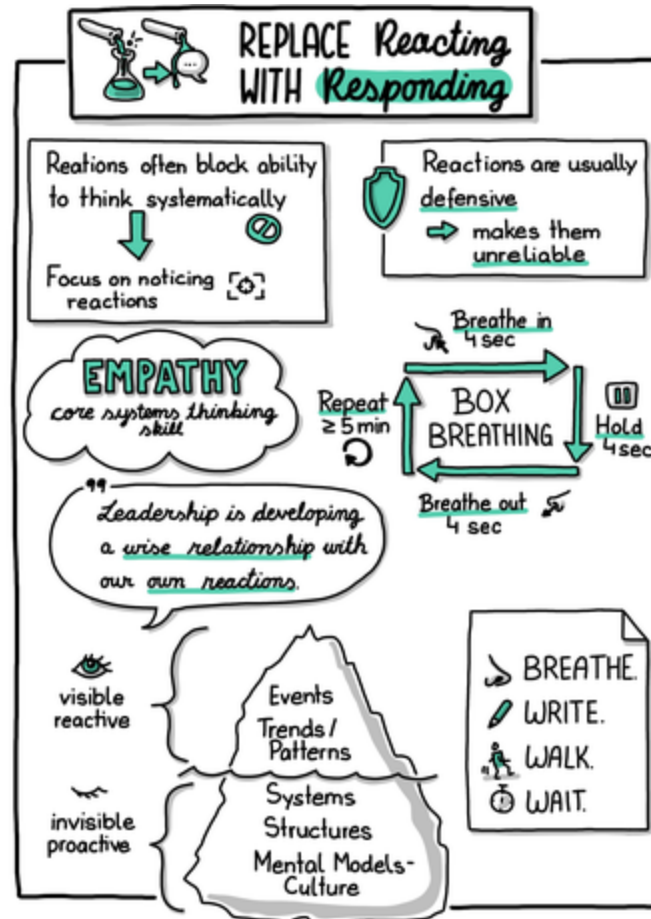 REPLACE Reacting
WITH Responding
Reations often block ability
to think systematically
Focus on noticing
reactions
Reactions are usually
defensive
makes them
unreliable
EMPATHY
core systems thinking
skill
Breathe in
4 sec
Hold
4 sec
Breathe out
4 sec
Repeat
≥ 5 min
BOX
BREATHING
"
Leadership is developing
a wise relationship with
our own reactions.
visible
reactive
Events
Trends/
Patterns
invisible
proactive
Systems
Structures
Mental Models-
Culture
BREATHE.
WRITE.
WALK.
WAIT.